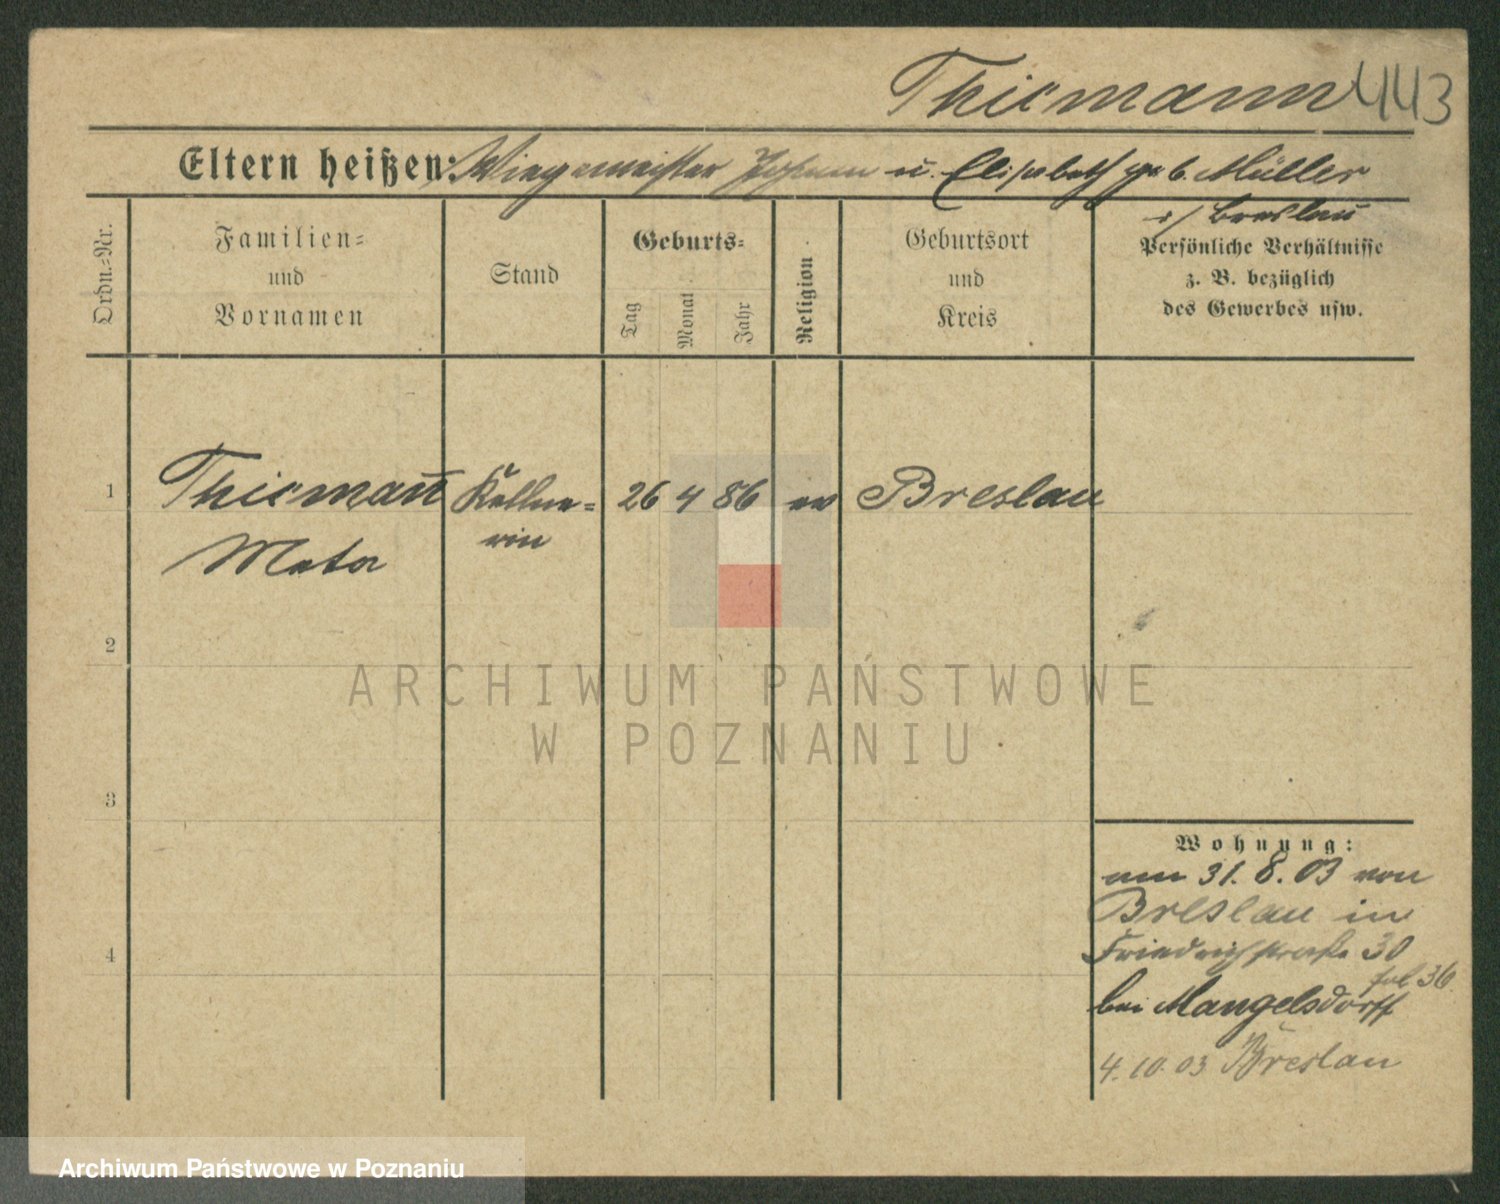 Thiemann 443
Eltern heißen: Wiegemeister u. Elisabeth geb. Müller
i/ Breslau
Ordn.-Nr.
Familien-
und
Vornamen
Stand
Geburts-
Tag
Monat
Jahr
Religion
Geburtsort
und
Kreis
Persönliche Verhältnisse
z. B. bezüglich
des Gewerbes usw.
1 Thiemañ Kellne= 26 4 86 ev Breslau
Meta rin
2
ARCHIWUM PAŃSTWOWE
W POZNANIU
3
Wohnung:
am 31. 8. 03 von
Breslau in
Friedrichstraße 30
fol 36
bei Mangelsdorff
4. 10. 03 Breslau
4
Archiwum Państwowe w Poznaniu